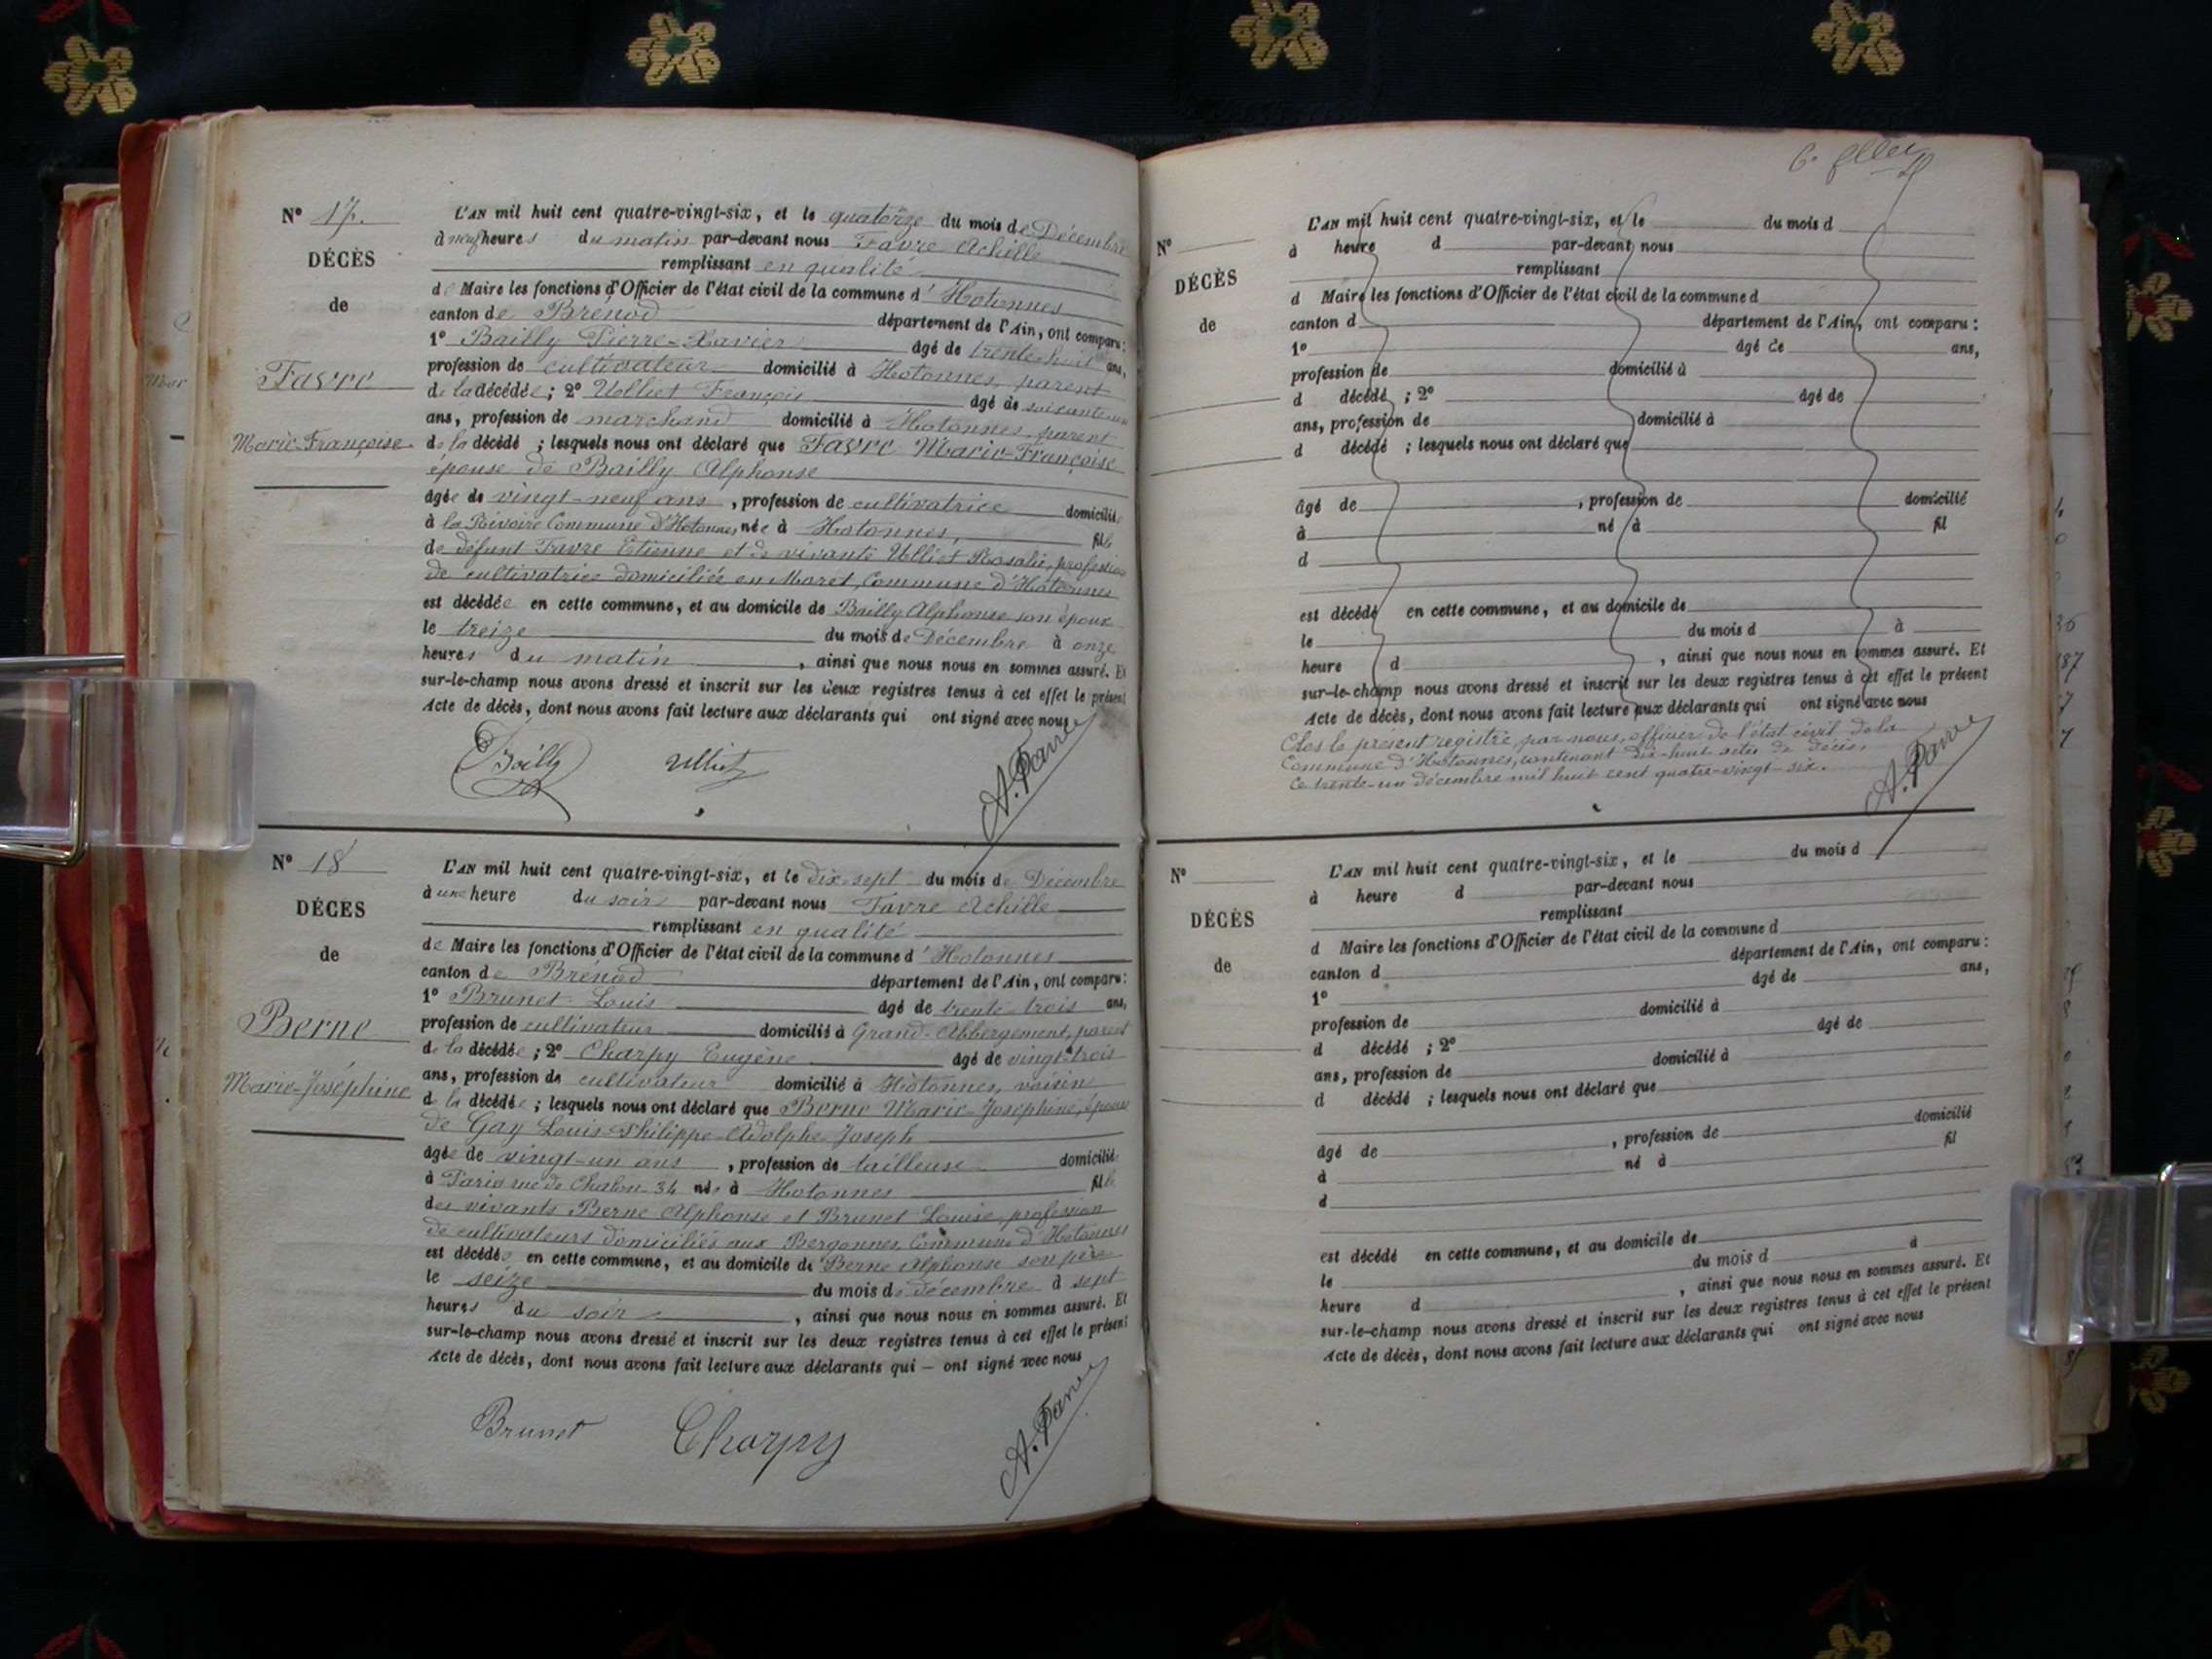 N° 17.
DÉCÈS
de
Favre
Marie-Françoise
L'AN mil huit cent quatre-vingt-six, et le quatorze du mois de Décembre
à neuf heures du matin par-devant nous Favre Achille
remplissant en qualité
de Maire les fonctions d'Officier de l'état civil de la commune d'Hotonnes
canton de Brénod département de l'Ain, ont comparu :
1° Bailly Pierre-Xavier âgé de trente-huit ans,
profession de cultivateur domicilié à Hotonnes, parent
de la décédée ; 2° Ulliet François âgé de soixante-un
ans, profession de marchand domicilié à Hotonnes, parent
de la décédé ; lesquels nous ont déclaré que Favre Marie-Françoise
épouse de Bailly Alphonse
âgée de vingt-neuf ans , profession de cultivatrice domicilié
à la Rivoire Commune d'Hotonnes, née à Hotonnes, fille
de défunt Favre Etienne et de vivante Ulliet Rosalie, profession
de cultivatrice domiciliée en Moret, Commune d'Hotonnes
est décédée en cette commune, et au domicile de Bailly Alphonse son époux
le treize du mois de Décembre à onze
heures du matin , ainsi que nous nous en sommes assuré. Et
sur-le-champ nous avons dressé et inscrit sur les deux registres tenus à cet effet le présent
Acte de décès, dont nous avons fait lecture aux déclarants qui ont signé avec nous
Bailly Ulliet A. Favre
N° 18
DÉCÈS
de
Berne
Marie-Joséphine
L'AN mil huit cent quatre-vingt-six, et le dix-sept du mois de Décembre
à une heure du soir par-devant nous Favre Achille
remplissant en qualité
de Maire les fonctions d'Officier de l'état civil de la commune d'Hotonnes
canton de Brénod département de l'Ain, ont comparu :
1° Brunet Louis âgé de trente-trois ans,
profession de cultivateur domicilié à Grand-Abbergement, parent
de la décédée ; 2° Charpy Eugène âgé de vingt-trois
ans, profession de cultivateur domicilié à Hotonnes, voisin
de la décédée ; lesquels nous ont déclaré que Berne Marie-Joséphine, épouse
de Gay Louis-Philippe-Adolphe-Joseph
âgée de vingt-un ans , profession de tailleuse domicilié
à Paris rue de Chalon 34 née à Hotonnes fille
des vivants Berne Alphonse et Brunet Louise, profession
de cultivateurs domiciliés aux Bergonnes, Commune d'Hotonnes
est décédée en cette commune, et au domicile de Berne Alphonse son père
le seize du mois de décembre à sept
heures du soir , ainsi que nous nous en sommes assuré. Et
sur-le-champ nous avons dressé et inscrit sur les deux registres tenus à cet effet le présent
Acte de décès, dont nous avons fait lecture aux déclarants qui – ont signé avec nous
Brunet Charpy A. Favre
N°
DÉCÈS
de
L'AN mil huit cent quatre-vingt-six, et le du mois d
à heure d par-devant nous
remplissant
d Maire les fonctions d'Officier de l'état civil de la commune d
canton d département de l'Ain, ont comparu :
1° âgé de ans,
profession de domicilié à
d décédé ; 2° âgé de
ans, profession de domicilié à
d décédé ; lesquels nous ont déclaré que
âgé de , profession de domicilié
à né à fil
d
est décédé en cette commune, et au domicile de
le du mois d à
heure d , ainsi que nous nous en sommes assuré. Et
sur-le-champ nous avons dressé et inscrit sur les deux registres tenus à cet effet le présent
Acte de décès, dont nous avons fait lecture aux déclarants qui ont signé avec nous
Clos le présent registre par nous, officier de l'état civil de la
Commune d'Hotonnes, contenant dix-huit actes de décès,
Ce trente-un décembre mil huit cent quatre-vingt-six.
A. Favre
N°
DÉCÈS
de
L'AN mil huit cent quatre-vingt-six, et le du mois d
à heure d par-devant nous
remplissant
d Maire les fonctions d'Officier de l'état civil de la commune d
canton d département de l'Ain, ont comparu :
1° âgé de ans,
profession de domicilié à
d décédé ; 2° âgé de
ans, profession de domicilié à
d décédé ; lesquels nous ont déclaré que
âgé de , profession de domicilié
à né à fil
d
est décédé en cette commune, et au domicile de
le du mois d à
heure d , ainsi que nous nous en sommes assuré. Et
sur-le-champ nous avons dressé et inscrit sur les deux registres tenus à cet effet le présent
Acte de décès, dont nous avons fait lecture aux déclarants qui ont signé avec nous